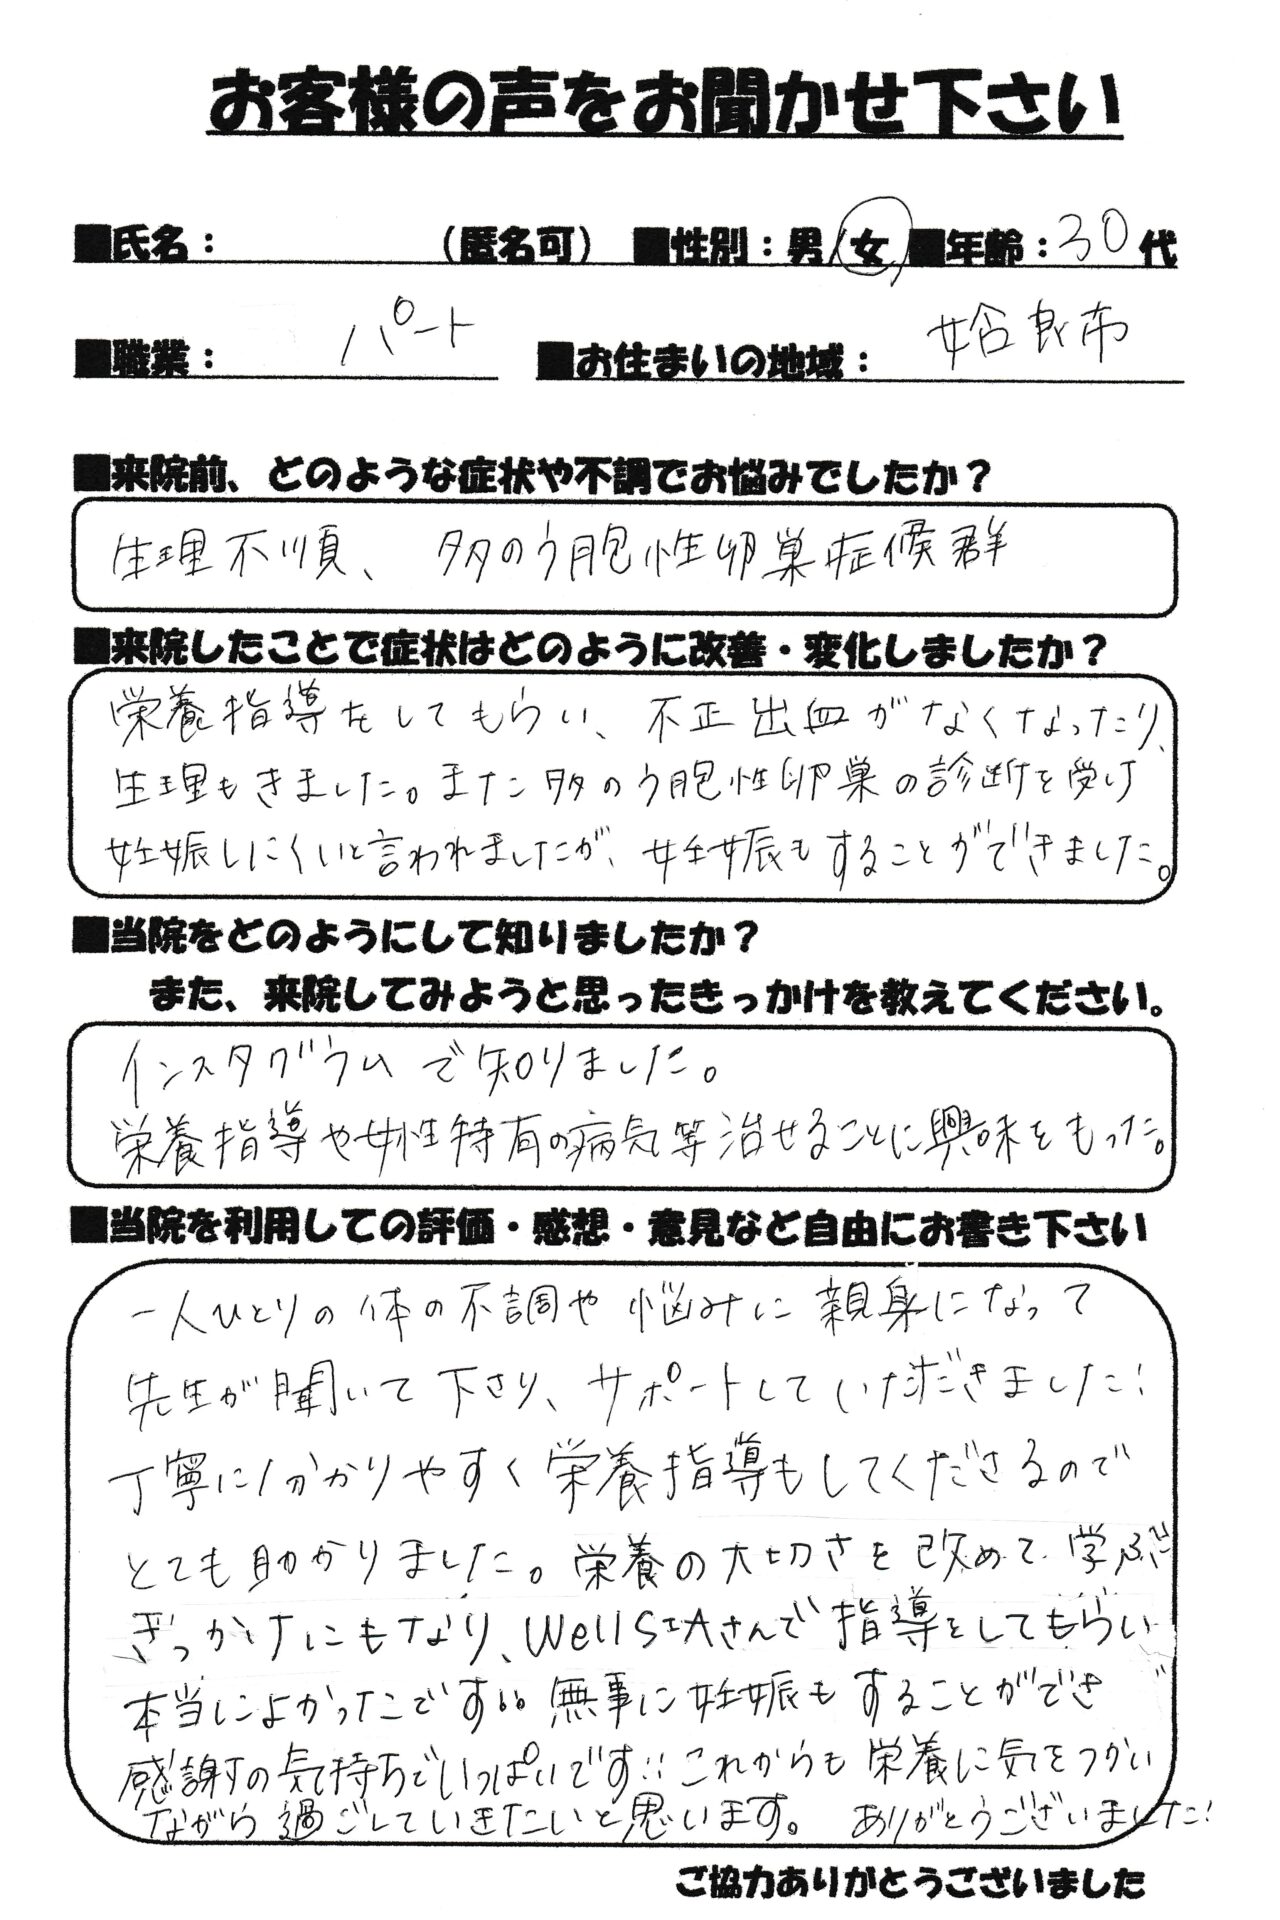 お客様の声をお聞かせ下さい
■氏名： （匿名可） ■性別：男/女 ■年齢：30代
■職業： パート ■お住まいの地域： 姶良市
■来院前、どのような症状や不調でお悩みでしたか？
生理不順、 多のう胞性卵巣症候群
■来院したことで症状はどのように改善・変化しましたか？
栄養指導をしてもらい、不正出血がなくなったり、
生理もきました。また多のう胞性卵巣の診断を受け
妊娠しにくいと言われましたが、妊娠もすることができました。
■当院をどのようにして知りましたか？
また、来院してみようと思ったきっかけを教えてください。
インスタグラムで知りました。
栄養指導や女性特有の病気等治せることに興味をもった。
■当院を利用しての評価・感想・意見など自由にお書き下さい
一人ひとりの体の不調や悩みに親身になって
先生が聞いて下さり、サポートしていただきました！
丁寧に分かりやすく栄養指導もしてくださるので
とても助かりました。栄養の大切さを改めて学ぶ
きっかけにもなり、WellSIAさんで指導をしてもらい
本当によかったです!! 無事に妊娠もすることができ
感謝の気持ちでいっぱいです!! これからも栄養に気をつかい
ながら過ごしていきたいと思います。 ありがとうございました！
ご協力ありがとうございました